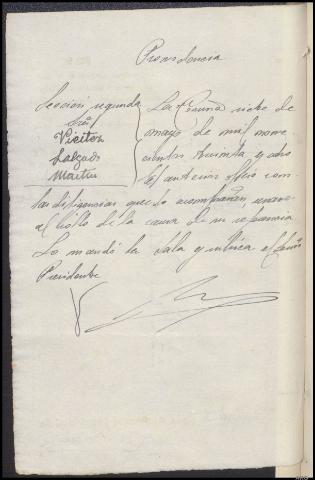 Providencia
Sección segunda
Sres
Vieitez
Salgado
Martin
La Coruña siete de
mayo de mil nove-
cientos treinta y ocho
El anterior oficio con
las diligencias que lo acompañan, unase
al rollo de la causa de su referencia
Lo mandó la Sala y rubrica el Señor
Presidente